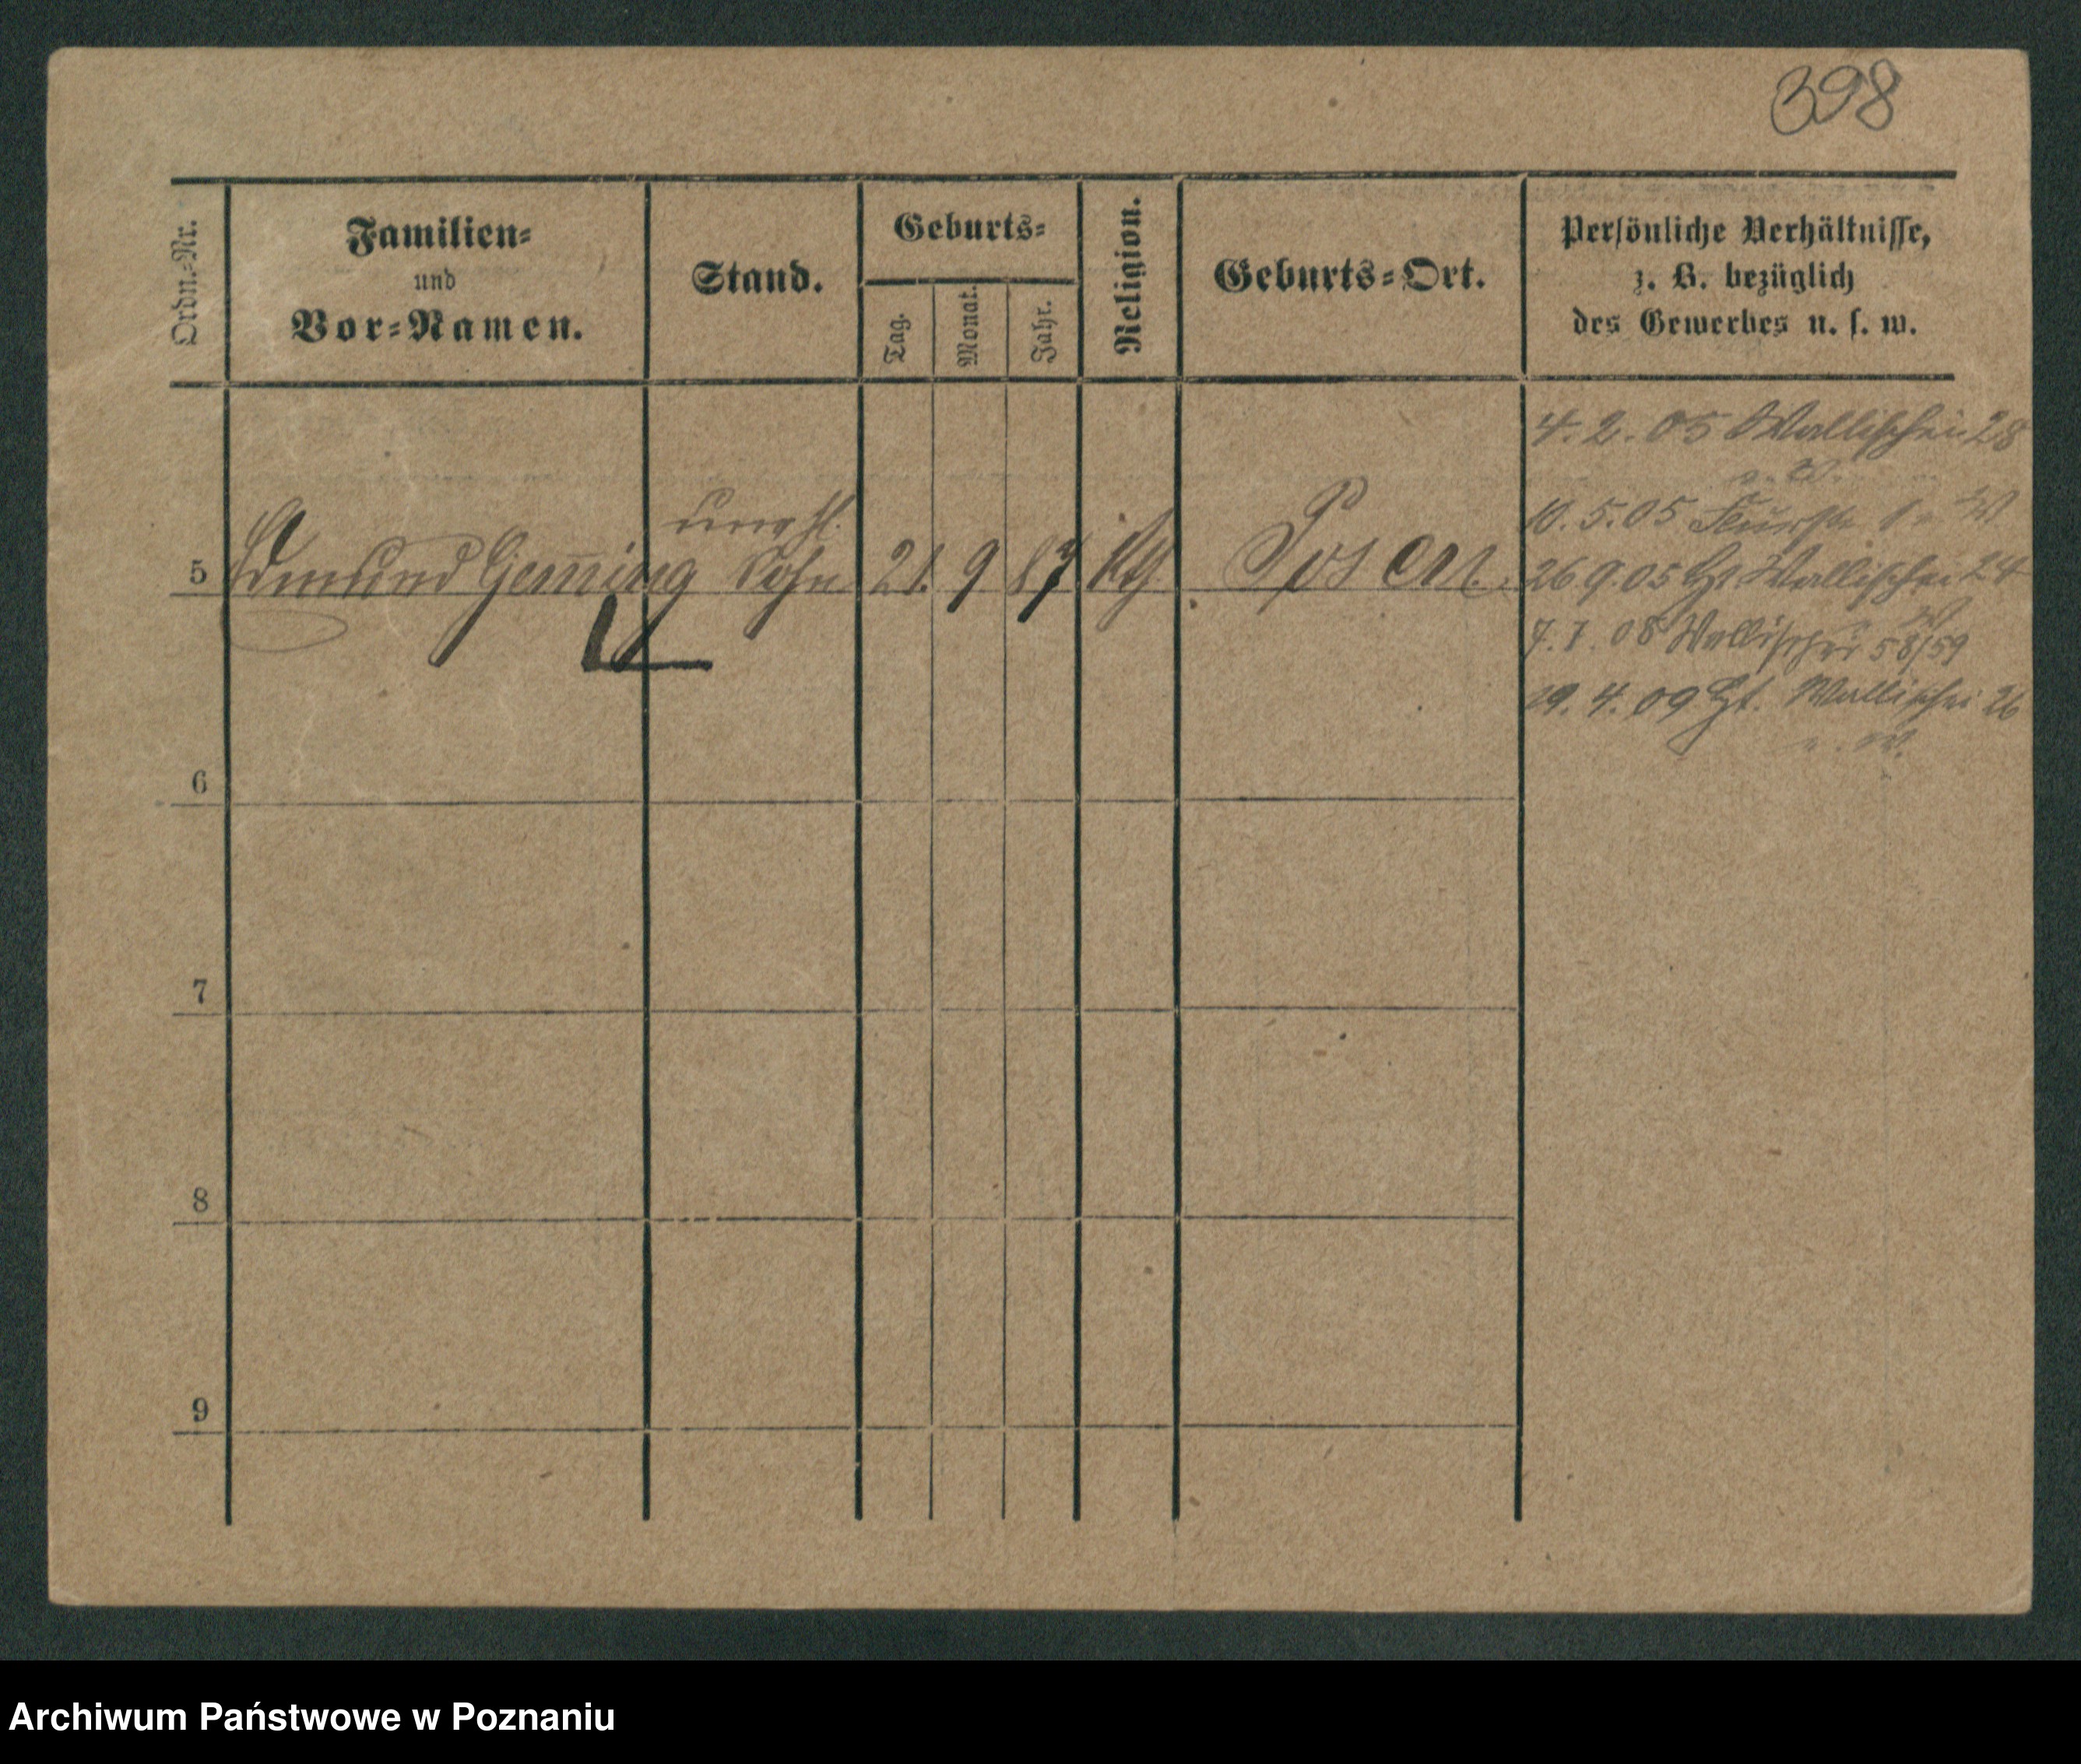 398
Ordn.-Nr.
Familien-
und
Vor-Namen.
Stand.
Geburts-
Tag.
Monat.
Jahr.
Religion.
Geburts-Ort.
Persönliche Verhältnisse,
z. B. bezüglich
des Gewerbes u. s. w.
4. 2. 05 Wallischei 28
10. 5. 05
unehl.
5 Edmund Sohn 21. 9 87 Posen
26 9. 05 Wallischei 24
7. 1. 08 Wallischei 58/59
19. 4. 09 Wallischei 26
6
7
8
9
Archiwum Państwowe w Poznaniu